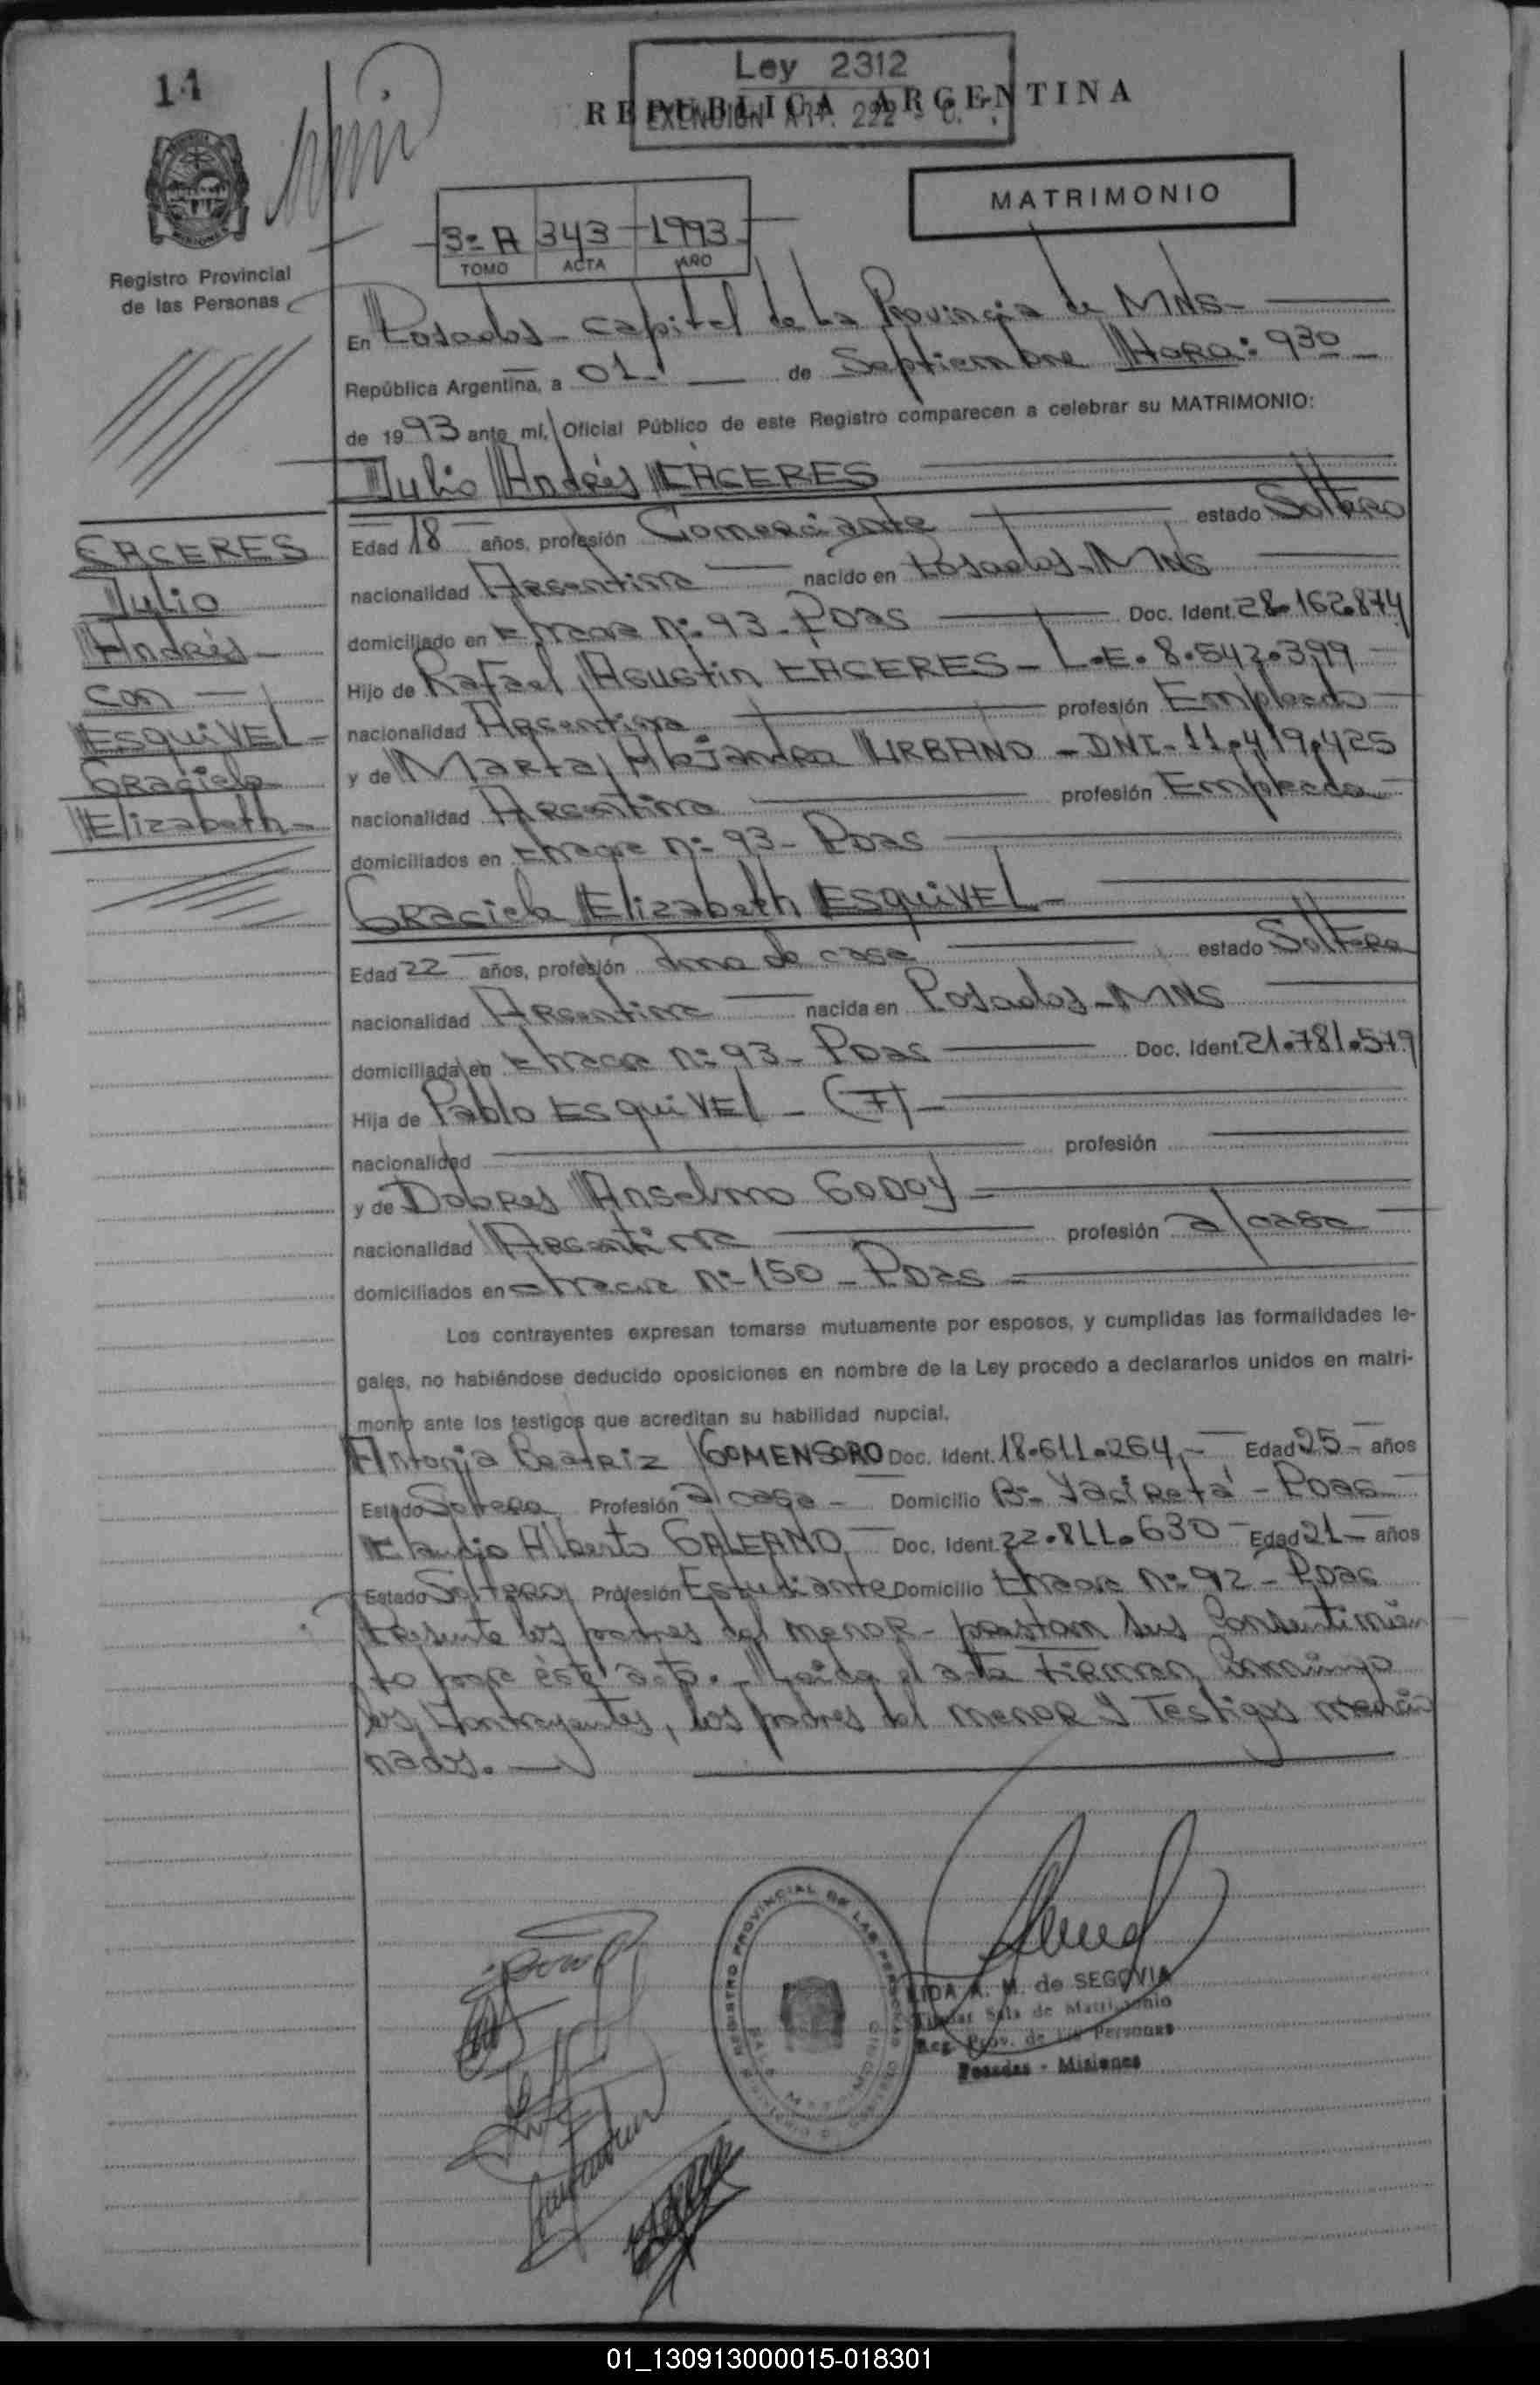 11
Ley 2312
EXENCION ART. 222 - C.
REPUBLICA ARGENTINA
MATRIMONIO
3º A 343 1993
TOMO ACTA AÑO
Registro Provincial
de las Personas
En Posadas - Capital de La Provincia de MNS -
República Argentina, a 01. de Septiembre Hora: 930
de 1993 ante mí, Oficial Público de este Registro comparecen a celebrar su MATRIMONIO:
Julio Andrés CACERES
CACERES
Julio
Andrés -
con -
ESQUIVEL -
Graciela
Elizabeth -
Edad 18 años, profesión Comerciante estado Soltero
nacionalidad Argentina nacido en Posadas - MNS
domiciliado en Nº 93 - Pdas Doc. Ident. 28.162.874
Hijo de Rafael Agustin CACERES - L.E. 8.542.399
nacionalidad Argentina profesión Empleado
y de Marta Alejandra URBANO - DNI - 11.419.425
nacionalidad Argentina profesión Empleada
domiciliados en Nº 93 - Pdas
Graciela Elizabeth ESQUIVEL -
Edad 22 años, profesión Ama de casa estado Soltera
nacionalidad Argentina nacida en Posadas - MNS
domiciliada en Nº 93 - Pdas Doc. Ident. 21.781.579
Hija de Pablo ESQUIVEL - (F) -
nacionalidad profesión
y de Dolores Anselma GODOY
nacionalidad Argentina profesión a/casa
domiciliados en Nº 150 - Pdas -
Los contrayentes expresan tomarse mutuamente por esposos, y cumplidas las formalidades le-
gales, no habiéndose deducido oposiciones en nombre de la Ley procedo a declararlos unidos en matri-
monio ante los testigos que acreditan su habilidad nupcial.
Antonia Beatriz GOMENSORO Doc. Ident. 18.611.264 - Edad 25 - años
Estado Soltera Profesión a/casa - Domicilio Bº Yaciretá - Pdas -
Claudio Alberto GALEANO Doc. Ident. 22.811.630 - Edad 21 - años
Estado Soltero Profesión Estudiante Domicilio Nº 92 - Pdas
Presente los padres del menor - prestam sus Consentimien
to por éste acto. - Leida el acta Firman Conmigo
los Contrayentes, los padres del menor y Testigos mencio
nados. -
REGISTRO PROVINCIAL DE LAS PERSONAS
LIDA A. M. de SEGOVIA
Titular Sala de Matrimonio
Reg. Prov. de las Personas
Posadas - Misiones
01_130913000015-018301